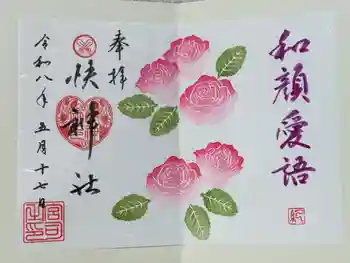 和顔愛語
奉拝
神社
令和八年 五月十七日